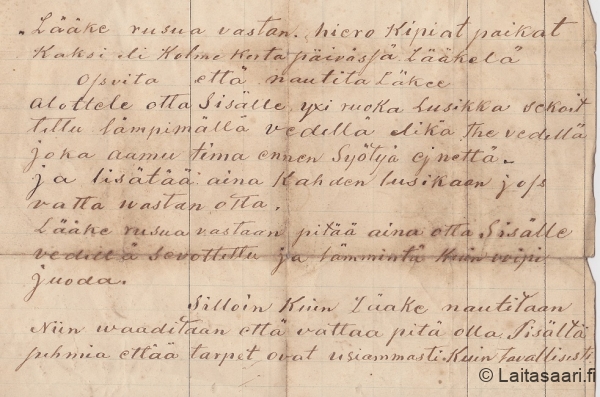 "Lääke rusua vastan. hiero Kipiat paikat
Kaksi eli Kolme kerta päivässä Lääkelä
Osvita että nautita Läkee
alottele otta Sisälle yxi ruoka Lusikka sekoit
tettu lämpimällä vedellä elikä The vedellä
joka aamu tima ennen Syötyä ejnettä.
ja lisätää aina Kahden lusikaan jos
vatta wastan otta.
Lääke rusua vastaan pitää aina otta Sisälle
vedellä sevottettu ja lämmintä Kuin voipi
juoda.
Silloin Kuin Lääke nautitaan
Niin waaditaan että vattaa pitä olla Sisältä
pehmiä ettää tarpet ovat usiammasti Kuin tavallisesti
© Laitasaari.fi